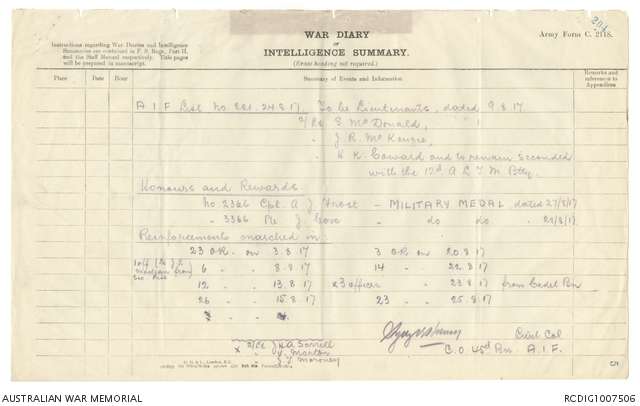 WAR DIARY
or
INTELLIGENCE SUMMARY.
(Erase heading not required.)
Army Form C. 2118.
Instructions regarding War Diaries and Intelligence
Summaries are contained in F. S. Regs., Part II.
and the Staff Manual respectively. Title pages
will be prepared in manuscript.
Place Date Hour Summary of Events and Information Remarks and references to Appendices
A.I.F List No 221. 24.8.17. To be Lieutenants, dated 9.8.17
McDonald,
J. R. McKenzie
K. Coward and to remain seconded
with the 12th A L T M Btty.
Honours and Rewards
No 2366 Cpl. A J Frost - MILITARY MEDAL, dated 27/8/17
" 3366 Pte J. - do do
Reinforcements marched in:
23 O.R. on 3.8.17 3 O.R. on 20.8.17
6 " 8.8.17 14 " 22.8.17
12 " 13.8.17 x3 officers " 23.8.17 from Cadet Bn
26 " 15.8.17 23 " 25.8.17
Lieut Col
C.O. 45th Bn. A.I.F.
Morton
J. Moroney
AUSTRALIAN WAR MEMORIAL
RCDIG1007506